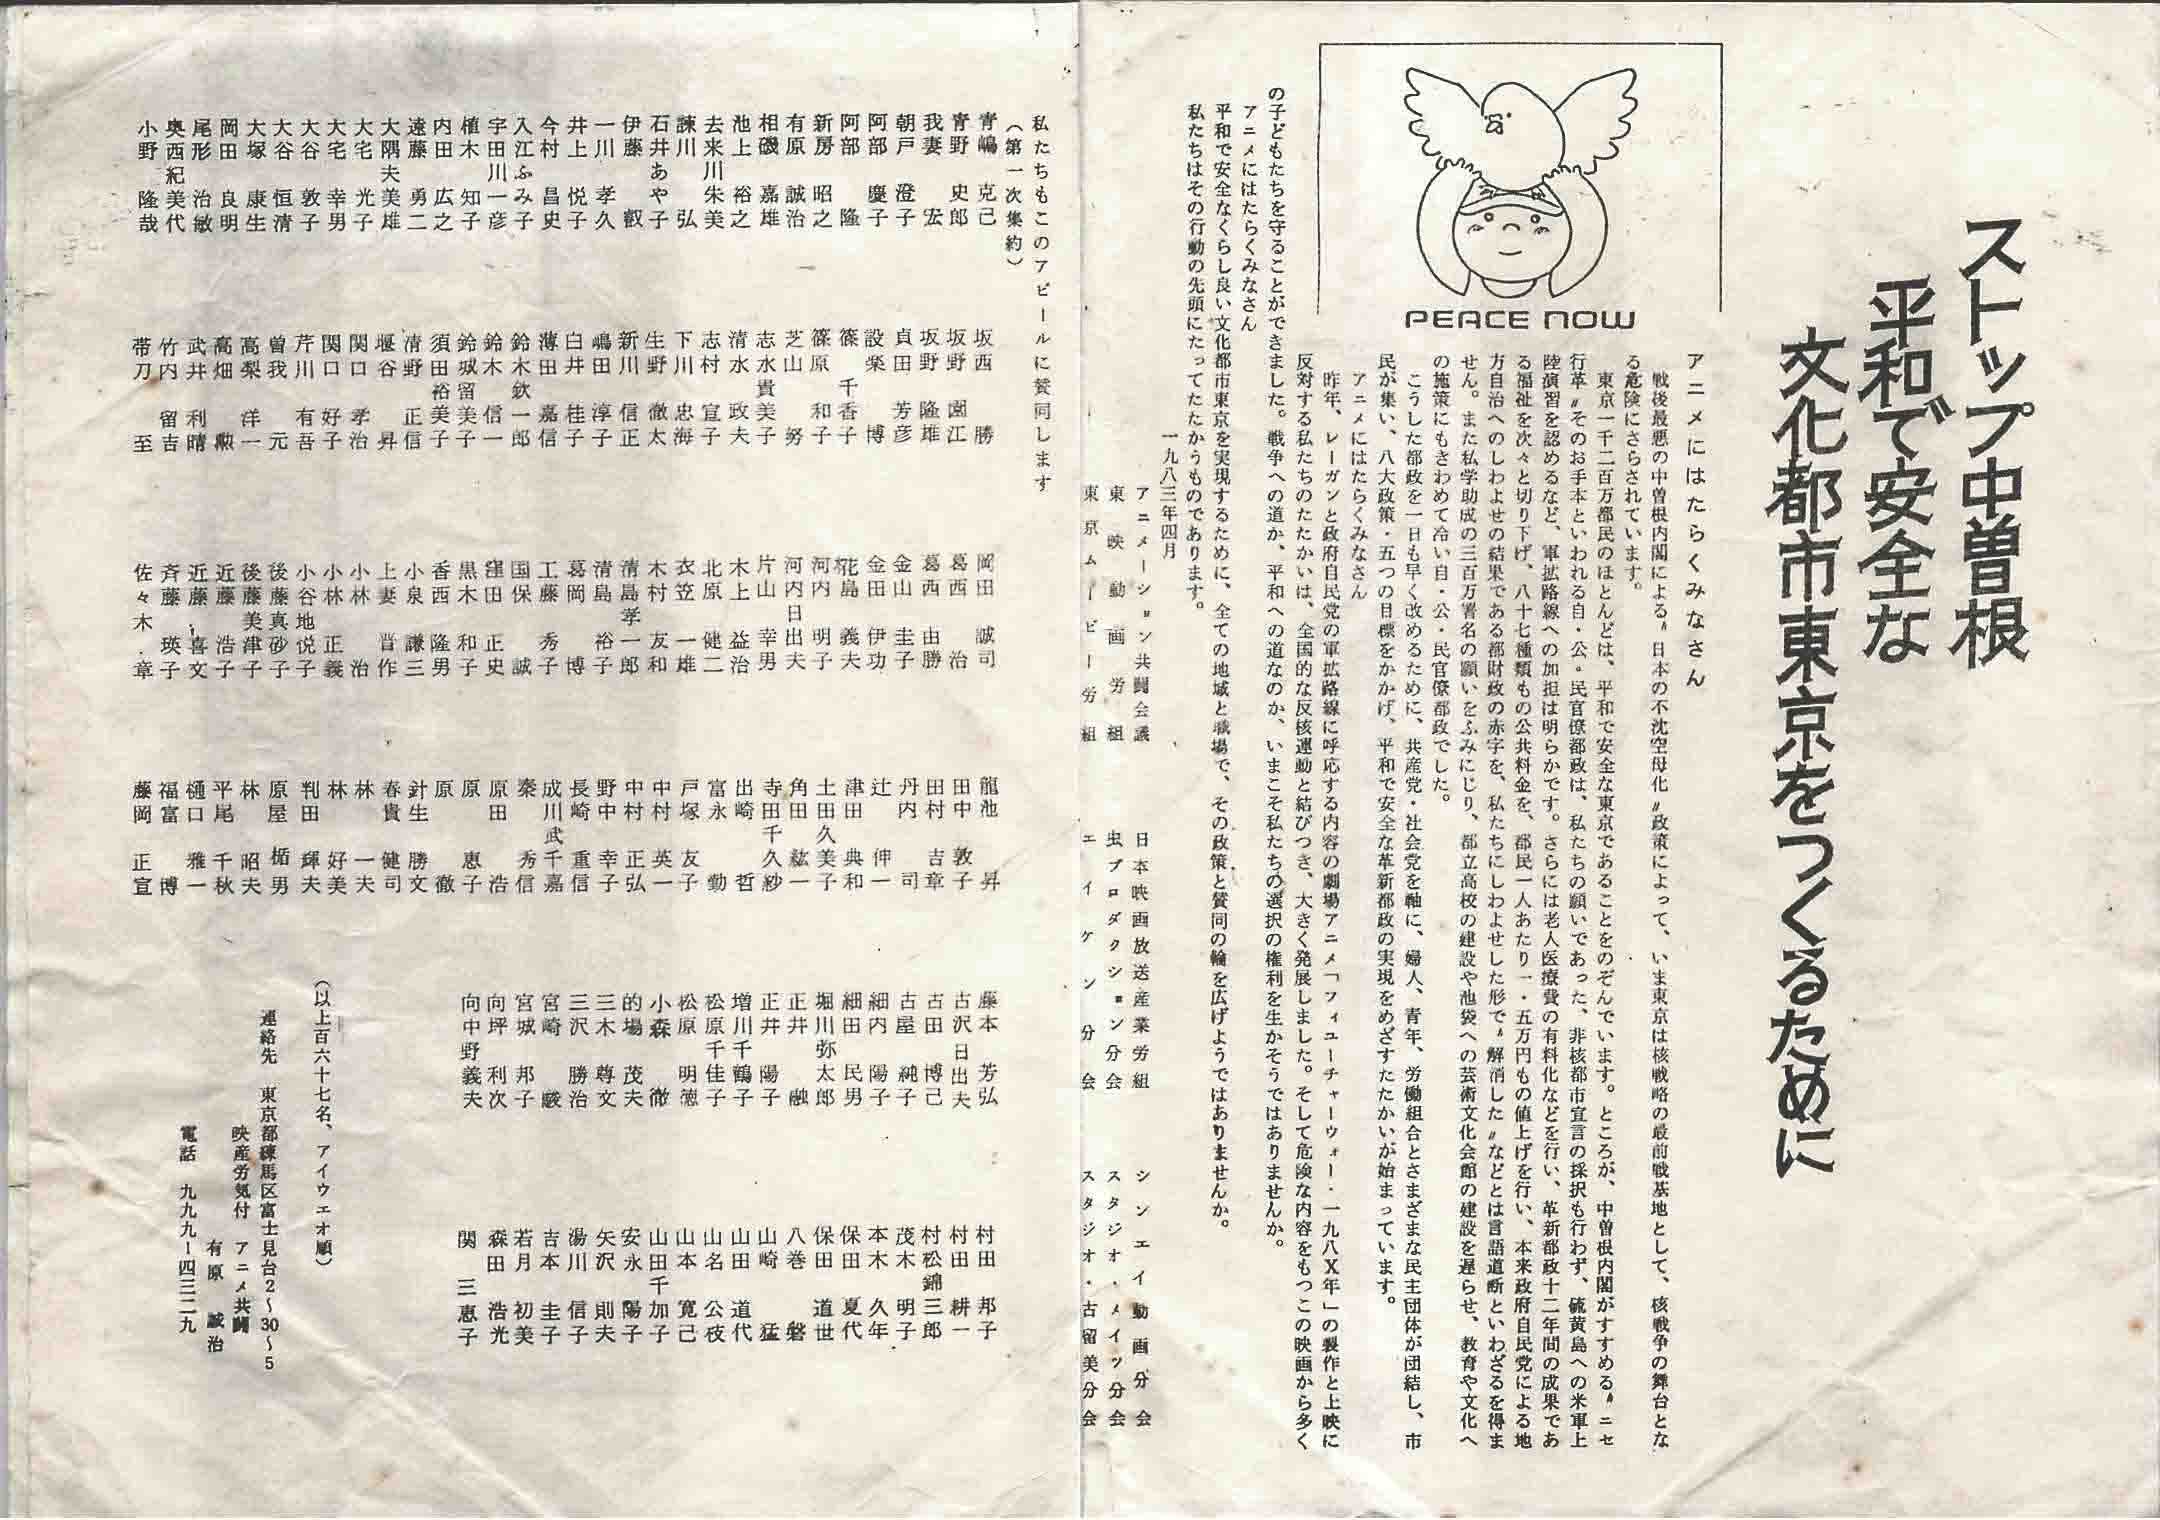 ストップ中曽根
平和で安全な
文化都市東京をつくるために
PEACE NOW
アニメにはたらくみなさん
戦後最悪の中曽根内閣による〝日本の不沈空母化〟政策によって、いま東京は核戦略の最前戦基地として、核戦争の舞台とな
る危険にさらされています。
東京一千二百万都民のほとんどは、平和で安全な東京であることをのぞんでいます。ところが、中曽根内閣がすすめる〝ニセ
行革〟そのお手本といわれる自・公・民官僚都政は、私たちの願いであった、非核都市宣言の採択も行わず、硫黄島への米軍上
陸演習を認めるなど、軍拡路線への加担は明らかです。さらには老人医療費の有料化などを行い、革新都政十二年間の成果であ
る福祉を次々と切り下げ、八十七種類もの公共料金を、都民一人あたり一・五万円もの値上げを行い、本来政府自民党による地
方自治へのしわよせの結果である都財政の赤字を、私たちにしわよせした形で〝解消した〟などとは言語道断といわざるを得ま
せん。また私学助成の三百万署名の願いをふみにじり、都立高校の建設や池袋への芸術文化会館の建設を遅らせ、教育や文化へ
の施策にもきわめて冷い自・公・民官僚都政でした。
こうした都政を一日も早く改めるために、共産党・社会党を軸に、婦人、青年、労働組合とさまざまな民主団体が団結し、市
民が集い、八大政策・五つの目標をかかげ、平和で安全な革新都政の実現をめざすたたかいが始まっています。
アニメにはたらくみなさん
昨年、レーガンと政府自民党の軍拡路線に呼応する内容の劇場アニメ「フィューチャーウォー・一九八X年」の製作と上映に
反対する私たちのたたかいは、全国的な反核運動と結びつき、大きく発展しました。そして危険な内容をもつこの映画から多く
の子どもたちを守ることができました。戦争への道か、平和への道なのか、いまこそ私たちの選択の権利を生かそうではありませんか。
アニメにはたらくみなさん
平和で安全なくらし良い文化都市東京を実現するために、全ての地域と職場で、その政策と賛同の輪を広げようではありませんか。
私たちはその行動の先頭にたってたたかうものであります。
一九八三年四月
アニメーション共闘会議
東映動画労組
東京ムービー労組
日本映画放送産業労組
虫プロダクション分会
エイケン分会
シンエイ動画分会
スタジオ・メイツ分会
スタジオ・古留美分会
私たちもこのアピールに賛同します
(第一次集約)
青嶋克己
青野史郎
我妻宏
朝戸澄子
阿部慶子
阿部隆
新房昭之
有原誠治
相磯嘉雄
池上裕之
去来川朱美
諫川弘
石井あや子
伊藤叡
一川孝久
井上悦子
今村昌史
入江ふみ子
宇田川一彦
植木知子
内田広之
遠藤勇二
大隅夫美雄
大宅光子
大宅幸男
大谷敦子
大谷恒清
大塚康生
岡田良明
尾形治敏
奥西紀美代
小野隆哉
坂西勝
坂野園江
坂野隆雄
貞田芳彦
設楽博
篠千香子
篠原和子
芝山努
志水貴美子
清水政夫
志村宣子
下川忠海
生野徹太
新川信正
嶋田淳子
白井桂子
薄田嘉信
鈴木欽一郎
鈴木信一
鈴城留美子
須田裕美子
清野正信
堰谷昇
関口孝治
関口好子
芹川有吾
曽我元
高梨洋一
高畑勲
武井利晴
竹内留吉
帯刀至
岡田誠司
葛西治
葛西由勝
金山圭子
金田伊功
椛島義夫
河内明子
河内日出夫
片山幸男
木上益治
北原健二
衣笠一雄
木村友和
清島孝一郎
清島裕子
葛岡博
工藤秀子
国保誠
窪田正史
黒木和子
香西隆男
小泉謙三
上妻晋作
小林治
小林正義
小谷地悦子
後藤真砂子
後藤美津子
近藤浩子
近藤喜文
斉藤瑛子
佐々木章
龍池昇
田中敦子
田村吉章
丹内司
辻伸一
津田典和
土田久美子
角田紘一
寺田千久紗
出崎哲
富永勤
戸塚友子
中村英一
中村正弘
野中幸子
長崎重信
成川武千嘉
秦秀信
原田浩
原恵子
原徹
針生勝文
春貴健司
林一夫
林好美
判田輝夫
原屋楯男
林昭夫
平尾千秋
樋口雅一
福富博
藤岡正宣
藤本芳弘
古沢日出夫
古田博己
古屋純子
細内陽子
細田民男
堀川弥太郎
正井融
正井陽子
増川千鶴子
松原千佳子
松原明徳
小森徹
的場茂夫
三木尊文
三沢勝治
宮崎駿
宮城邦子
向坪利次
向中野義夫
村田邦子
村田耕一
村松錦三郎
茂木明子
本木久年
保田夏代
保田道世
八巻磐
山崎猛
山田道代
山名公枝
山本寛己
山田千加子
安永陽子
矢沢則夫
湯川信子
吉本圭子
若月初美
森田浩光
関三恵子
(以上百六十七名、アイウェオ順)
連絡先 東京都練馬区富士見台2~30~5
映産労気付 アニメ共闘
有原誠治
電話 九九九-四三二九